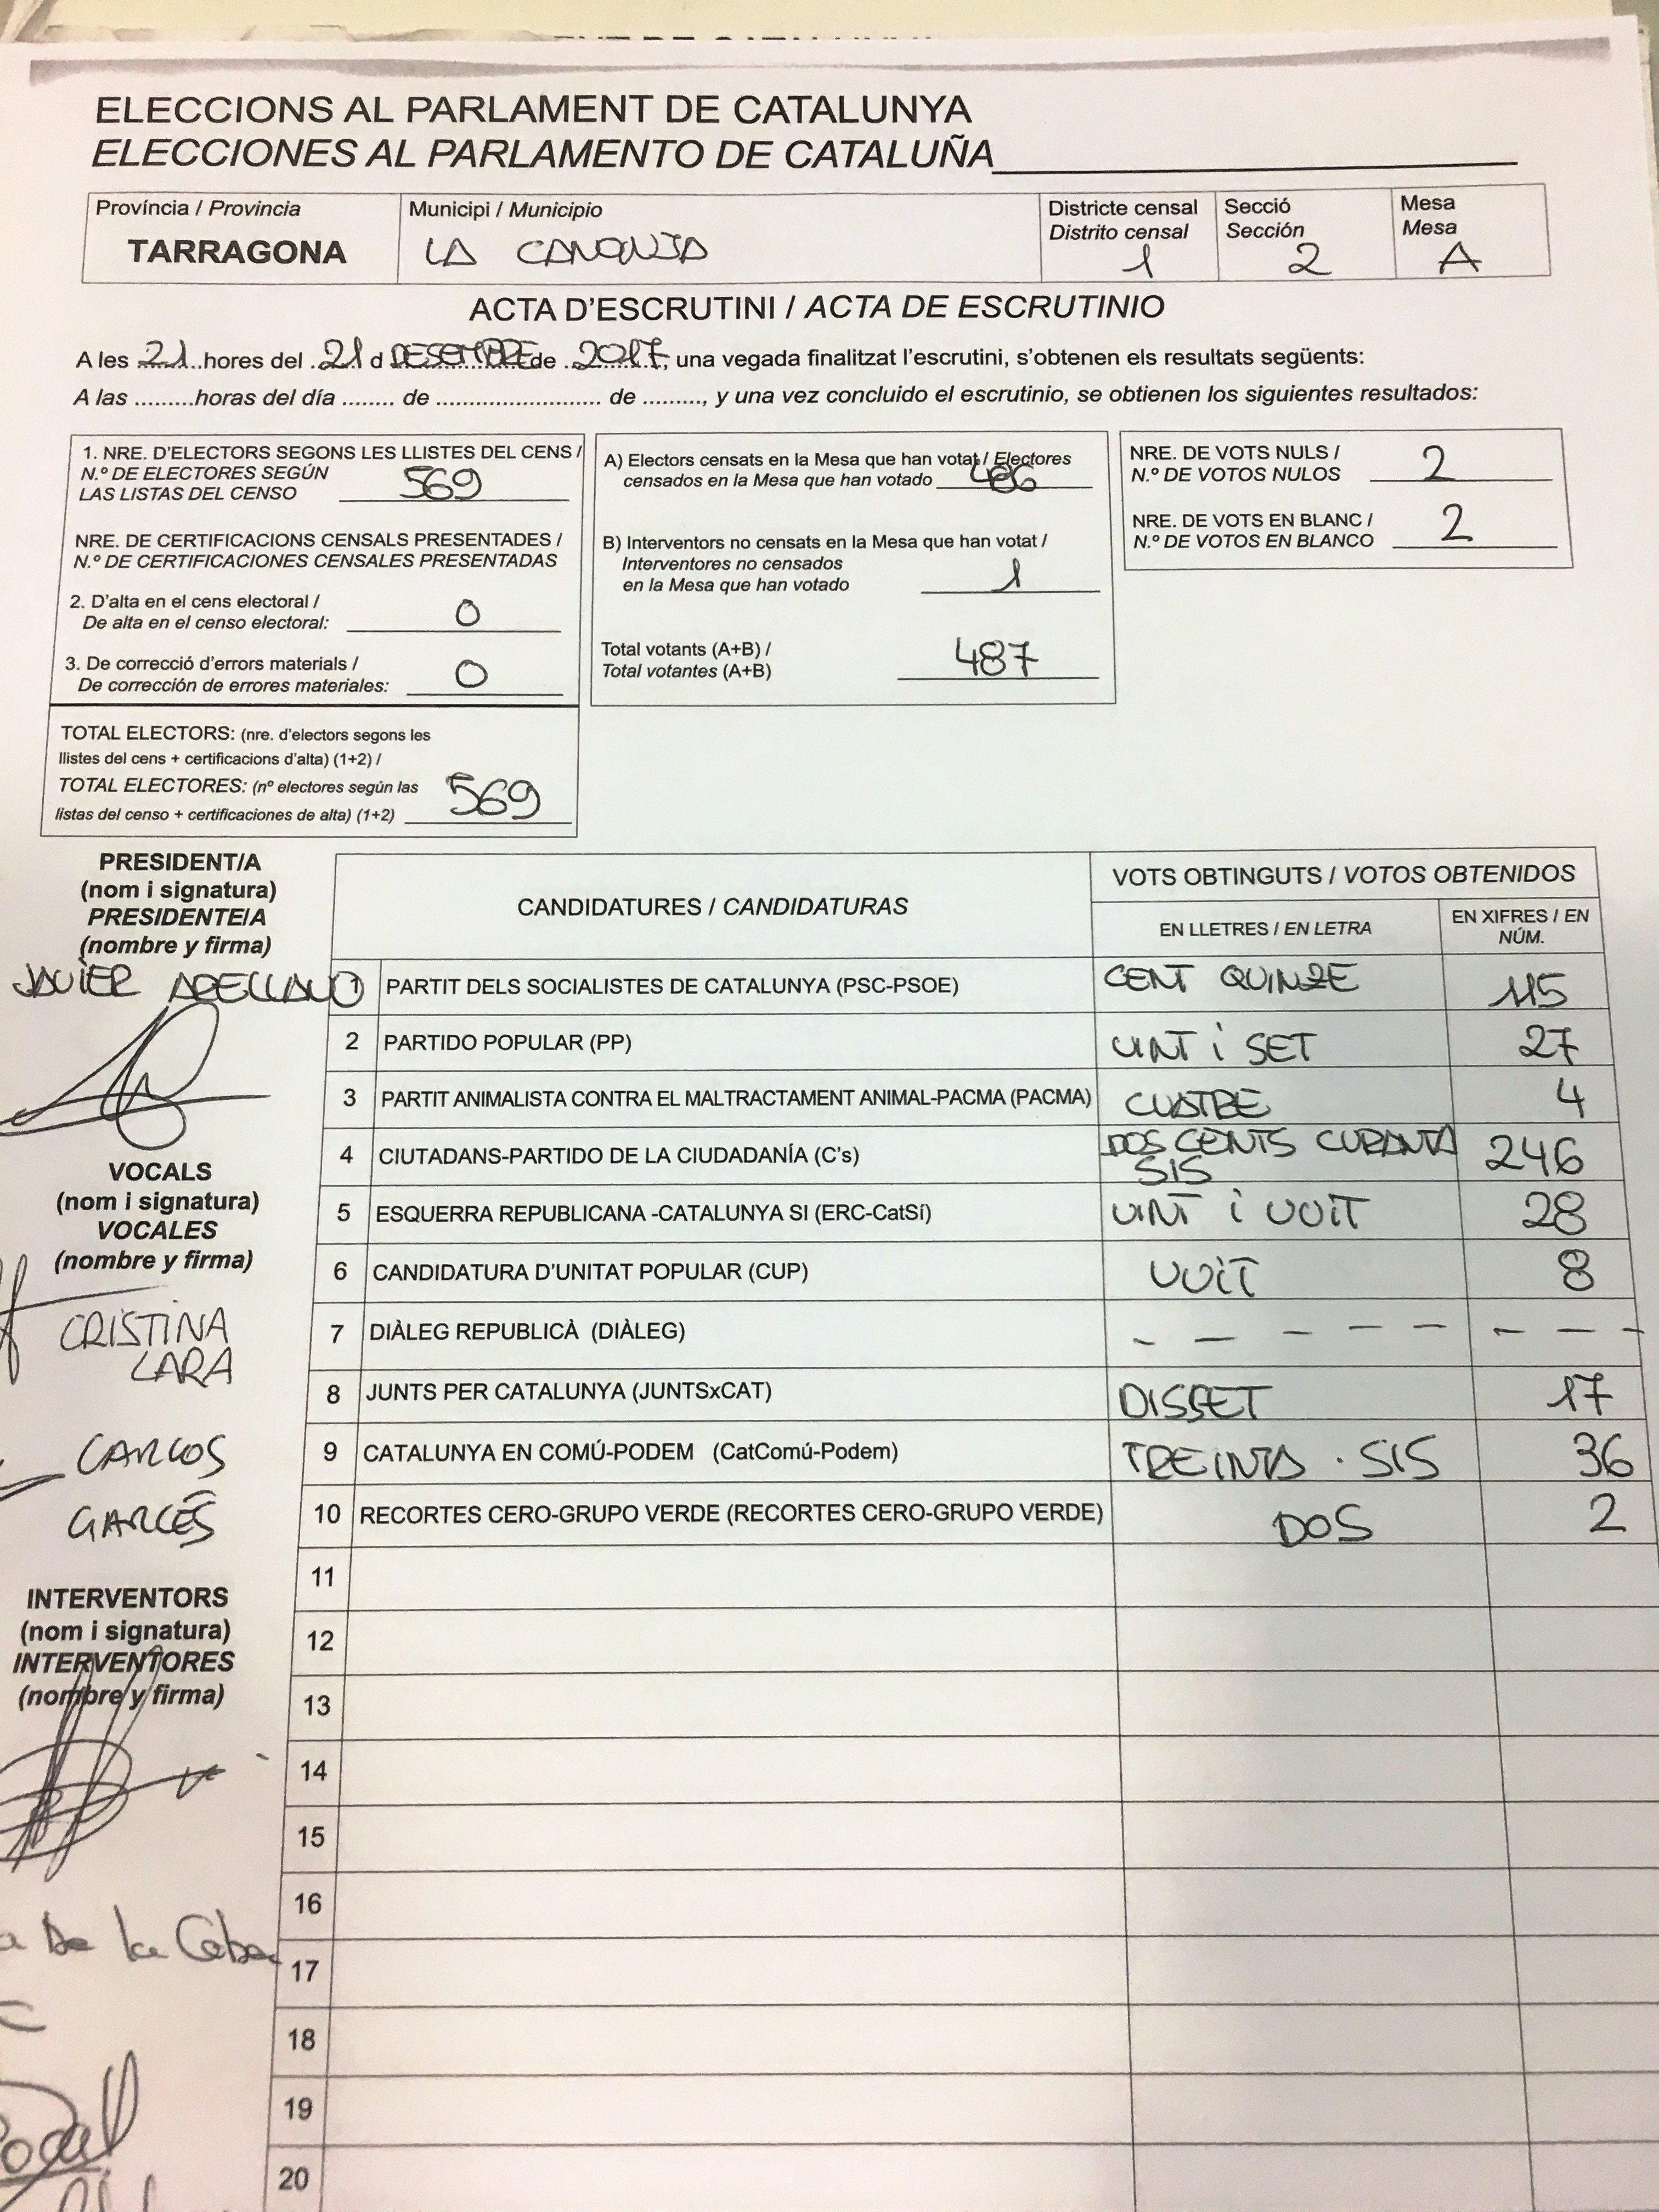 ELECCIONS AL PARLAMENT DE CATALUNYA
ELECCIONES AL PARLAMENTO DE CATALUÑA
Província / Provincia
TARRAGONA
Municipi / Municipio
LA CANONJA
Districte censal
Distrito censal
1
Secció
Sección
2
Mesa
Mesa
A
ACTA D'ESCRUTINI / ACTA DE ESCRUTINIO
A les 21 hores del 21 d DESEMBRE de 2017, una vegada finalitzat l'escrutini, s'obtenen els resultats següents:
A las .........horas del día ........ de ........................ de ........., y una vez concluido el escrutinio, se obtienen los siguientes resultados:
1. NRE. D'ELECTORS SEGONS LES LLISTES DEL CENS /
N.º DE ELECTORES SEGÚN
LAS LISTAS DEL CENSO 569
NRE. DE CERTIFICACIONS CENSALS PRESENTADES /
N.º DE CERTIFICACIONES CENSALES PRESENTADAS
2. D'alta en el cens electoral /
De alta en el censo electoral: 0
3. De correcció d'errors materials /
De corrección de errores materiales: 0
TOTAL ELECTORS: (nre. d'electors segons les
llistes del cens + certificacions d'alta) (1+2) /
TOTAL ELECTORES: (nº electores según las
listas del censo + certificaciones de alta) (1+2) 569
A) Electors censats en la Mesa que han votat / Electores
censados en la Mesa que han votado 486
B) Interventors no censats en la Mesa que han votat /
Interventores no censados
en la Mesa que han votado 1
Total votants (A+B) /
Total votantes (A+B) 487
NRE. DE VOTS NULS /
N.º DE VOTOS NULOS 2
NRE. DE VOTS EN BLANC /
N.º DE VOTOS EN BLANCO 2
PRESIDENT/A
(nom i signatura)
PRESIDENTE/A
(nombre y firma)
JAVIER ARELLANO
VOCALS
(nom i signatura)
VOCALES
(nombre y firma)
CRISTINA
LARA
CARLOS
GARCÉS
INTERVENTORS
(nom i signatura)
INTERVENTORES
(nombre y firma)
De la
CANDIDATURES / CANDIDATURAS
VOTS OBTINGUTS / VOTOS OBTENIDOS
EN LLETRES / EN LETRA
EN XIFRES / EN
NÚM.
1 PARTIT DELS SOCIALISTES DE CATALUNYA (PSC-PSOE) CENT QUINZE 115
2 PARTIDO POPULAR (PP) VINT i SET 27
3 PARTIT ANIMALISTA CONTRA EL MALTRACTAMENT ANIMAL-PACMA (PACMA) CUATRE 4
4 CIUTADANS-PARTIDO DE LA CIUDADANÍA (C's) DOS CENTS CURANTA 246
SIS
5 ESQUERRA REPUBLICANA -CATALUNYA SI (ERC-CatSí) VINT i VOIT 28
6 CANDIDATURA D'UNITAT POPULAR (CUP) VOIT 8
7 DIÀLEG REPUBLICÀ (DIÀLEG) - - - - - - - -
8 JUNTS PER CATALUNYA (JUNTSxCAT) DISSET 17
9 CATALUNYA EN COMÚ-PODEM (CatComú-Podem) TREINTA · SIS 36
10 RECORTES CERO-GRUPO VERDE (RECORTES CERO-GRUPO VERDE) DOS 2
11
12
13
14
15
16
17
18
19
20